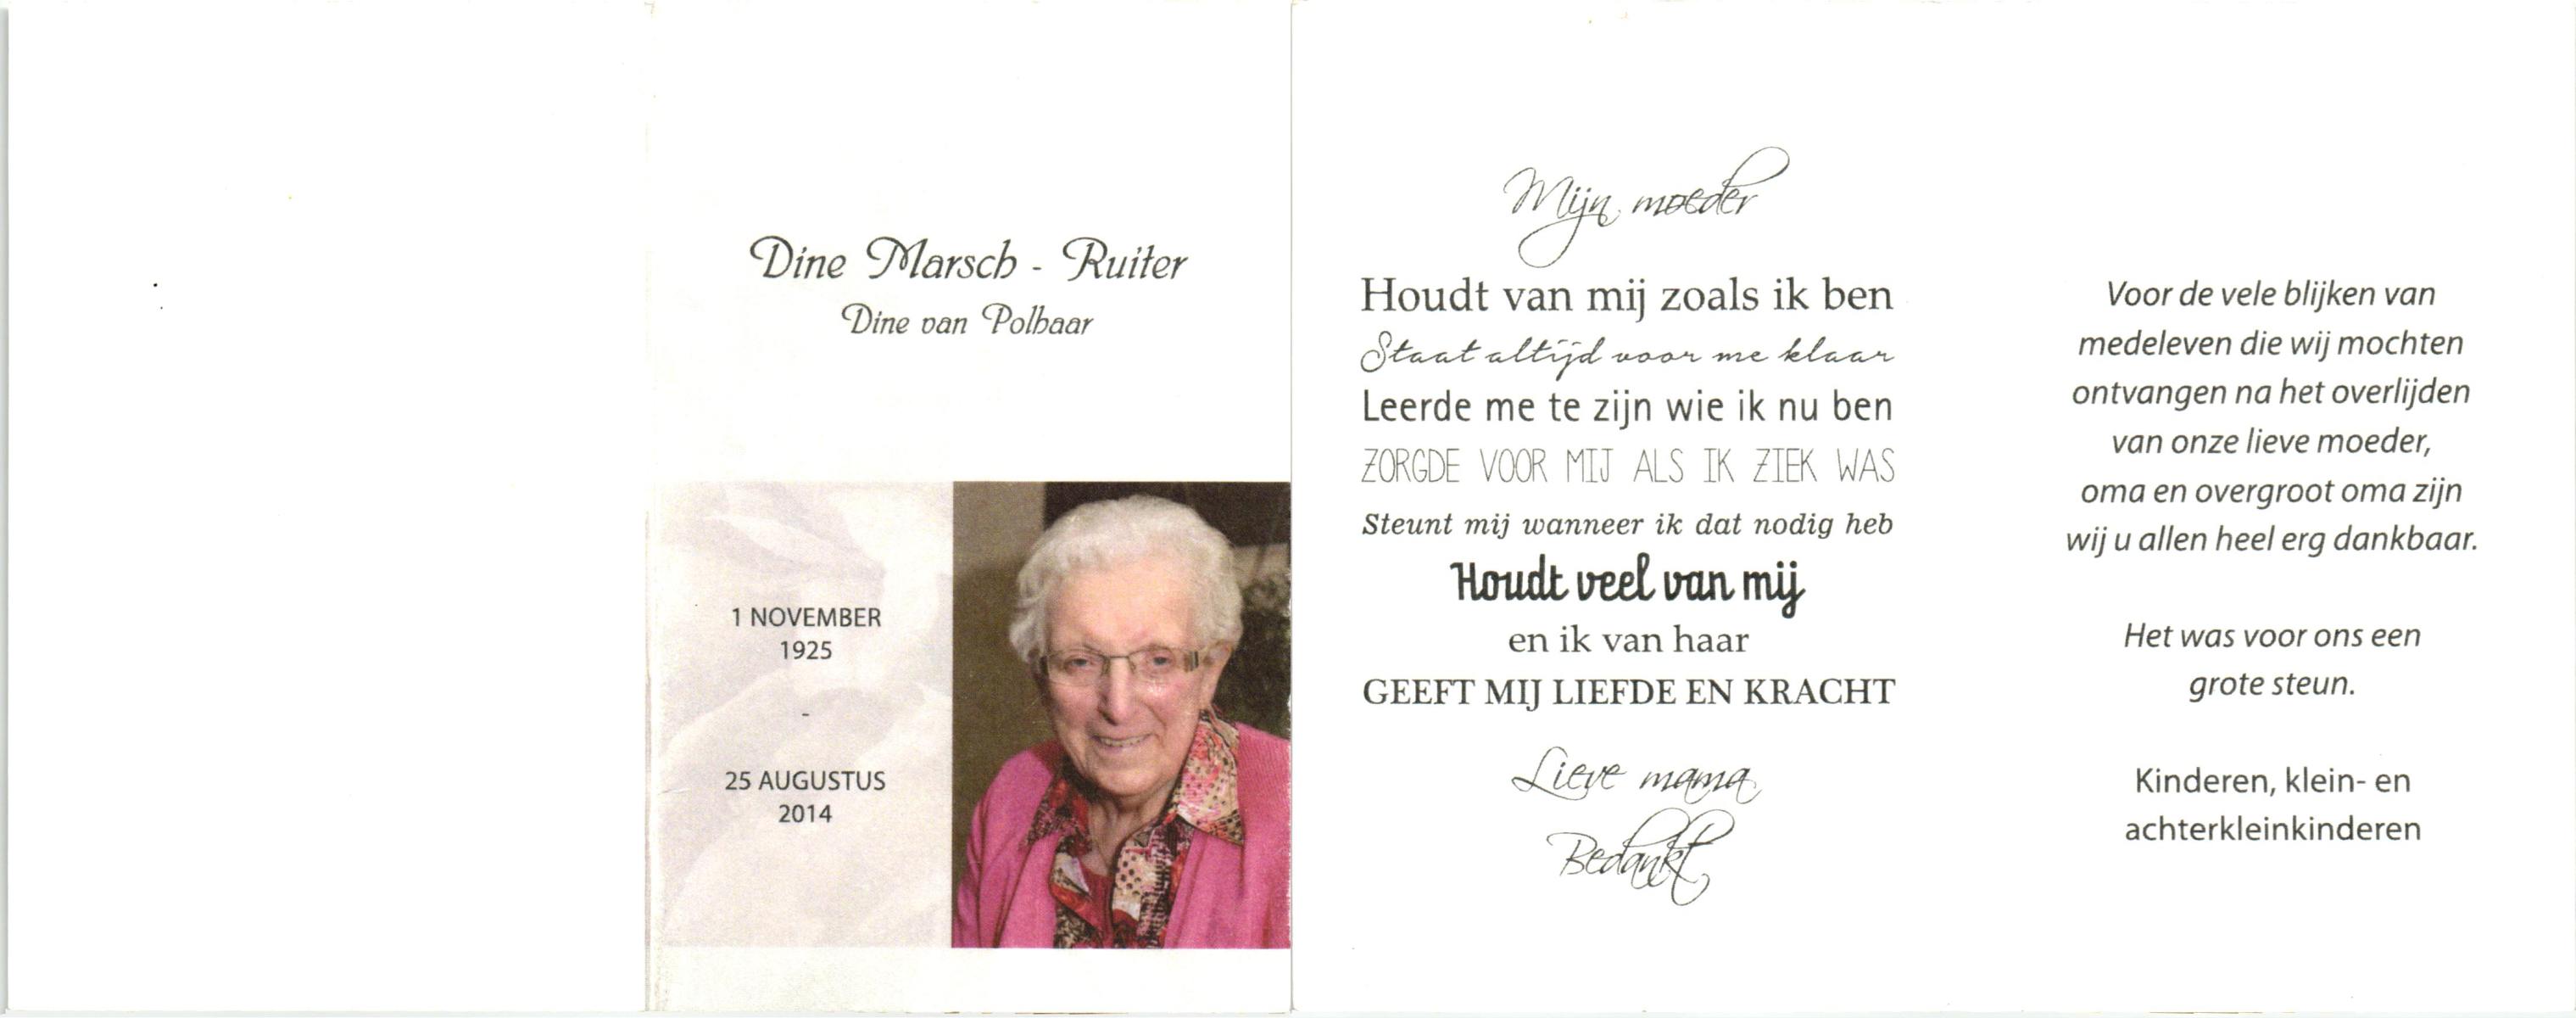 Dine Marsch - Ruiter
Dine van Polhaar
1 NOVEMBER
1925
-
25 AUGUSTUS
2014
Mijn moeder
Houdt van mij zoals ik ben
Staat altijd voor me klaar
Leerde me te zijn wie ik nu ben
ZORGDE VOOR MIJ ALS IK ZIEK WAS
Steunt mij wanneer ik dat nodig heb
Houdt veel van mij
en ik van haar
GEEFT MIJ LIEFDE EN KRACHT
Lieve mama
Bedankt
Voor de vele blijken van
medeleven die wij mochten
ontvangen na het overlijden
van onze lieve moeder,
oma en overgroot oma zijn
wij u allen heel erg dankbaar.
Het was voor ons een
grote steun.
Kinderen, klein- en
achterkleinkinderen